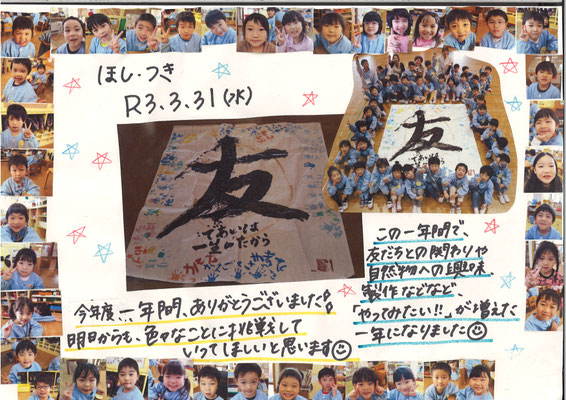 ほし・つき
R3.3.31(水)
友
であいは
一生のたから
友
であいは
一生のたから
この一年間で、
友だちとの関わりや
自然物への興味、
製作などなど、
「やってみたい!!」が増えた
一年になりました☺
今年度、一年間、ありがとうございました!!
明日からも、色々なことに挑戦して
いってほしいと思います☺